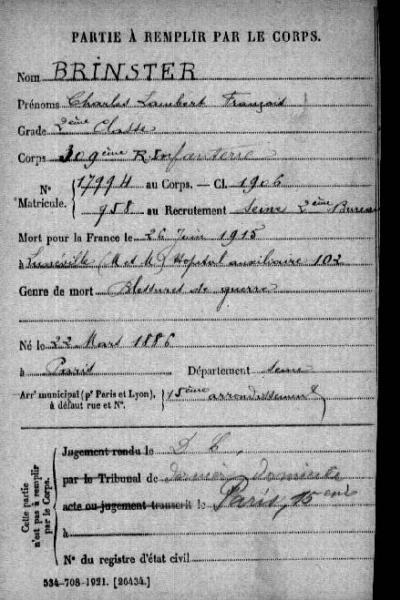 PARTIE À REMPLIR PAR LE CORPS.
Nom BRINSTER
Prénoms Charles Lambert François
Grade 2ème Classe
Corps 309ème R. Infanterie
N° Matricule. 17994 au Corps. — Cl. 1906
958 au Recrutement Seine 2ème Bureau
Mort pour la France le 26 Juin 1915
à Lunéville (M et M) Hopital auxiliaire 102
Genre de mort Blessures de guerre
Né le 22 Mars 1886
à Paris Département Seine
Arr' municipal (p' Paris et Lyon), à défaut rue et N°. 15ème arrondissement
Cette partie n'est pas à remplir par le Corps.
Jugement rendu le D C,
par le Tribunal de dernier domicile
acte ou jugement transcrit le Paris, 15 eme
N° du registre d'état civil
534-708-1921. [26434.]